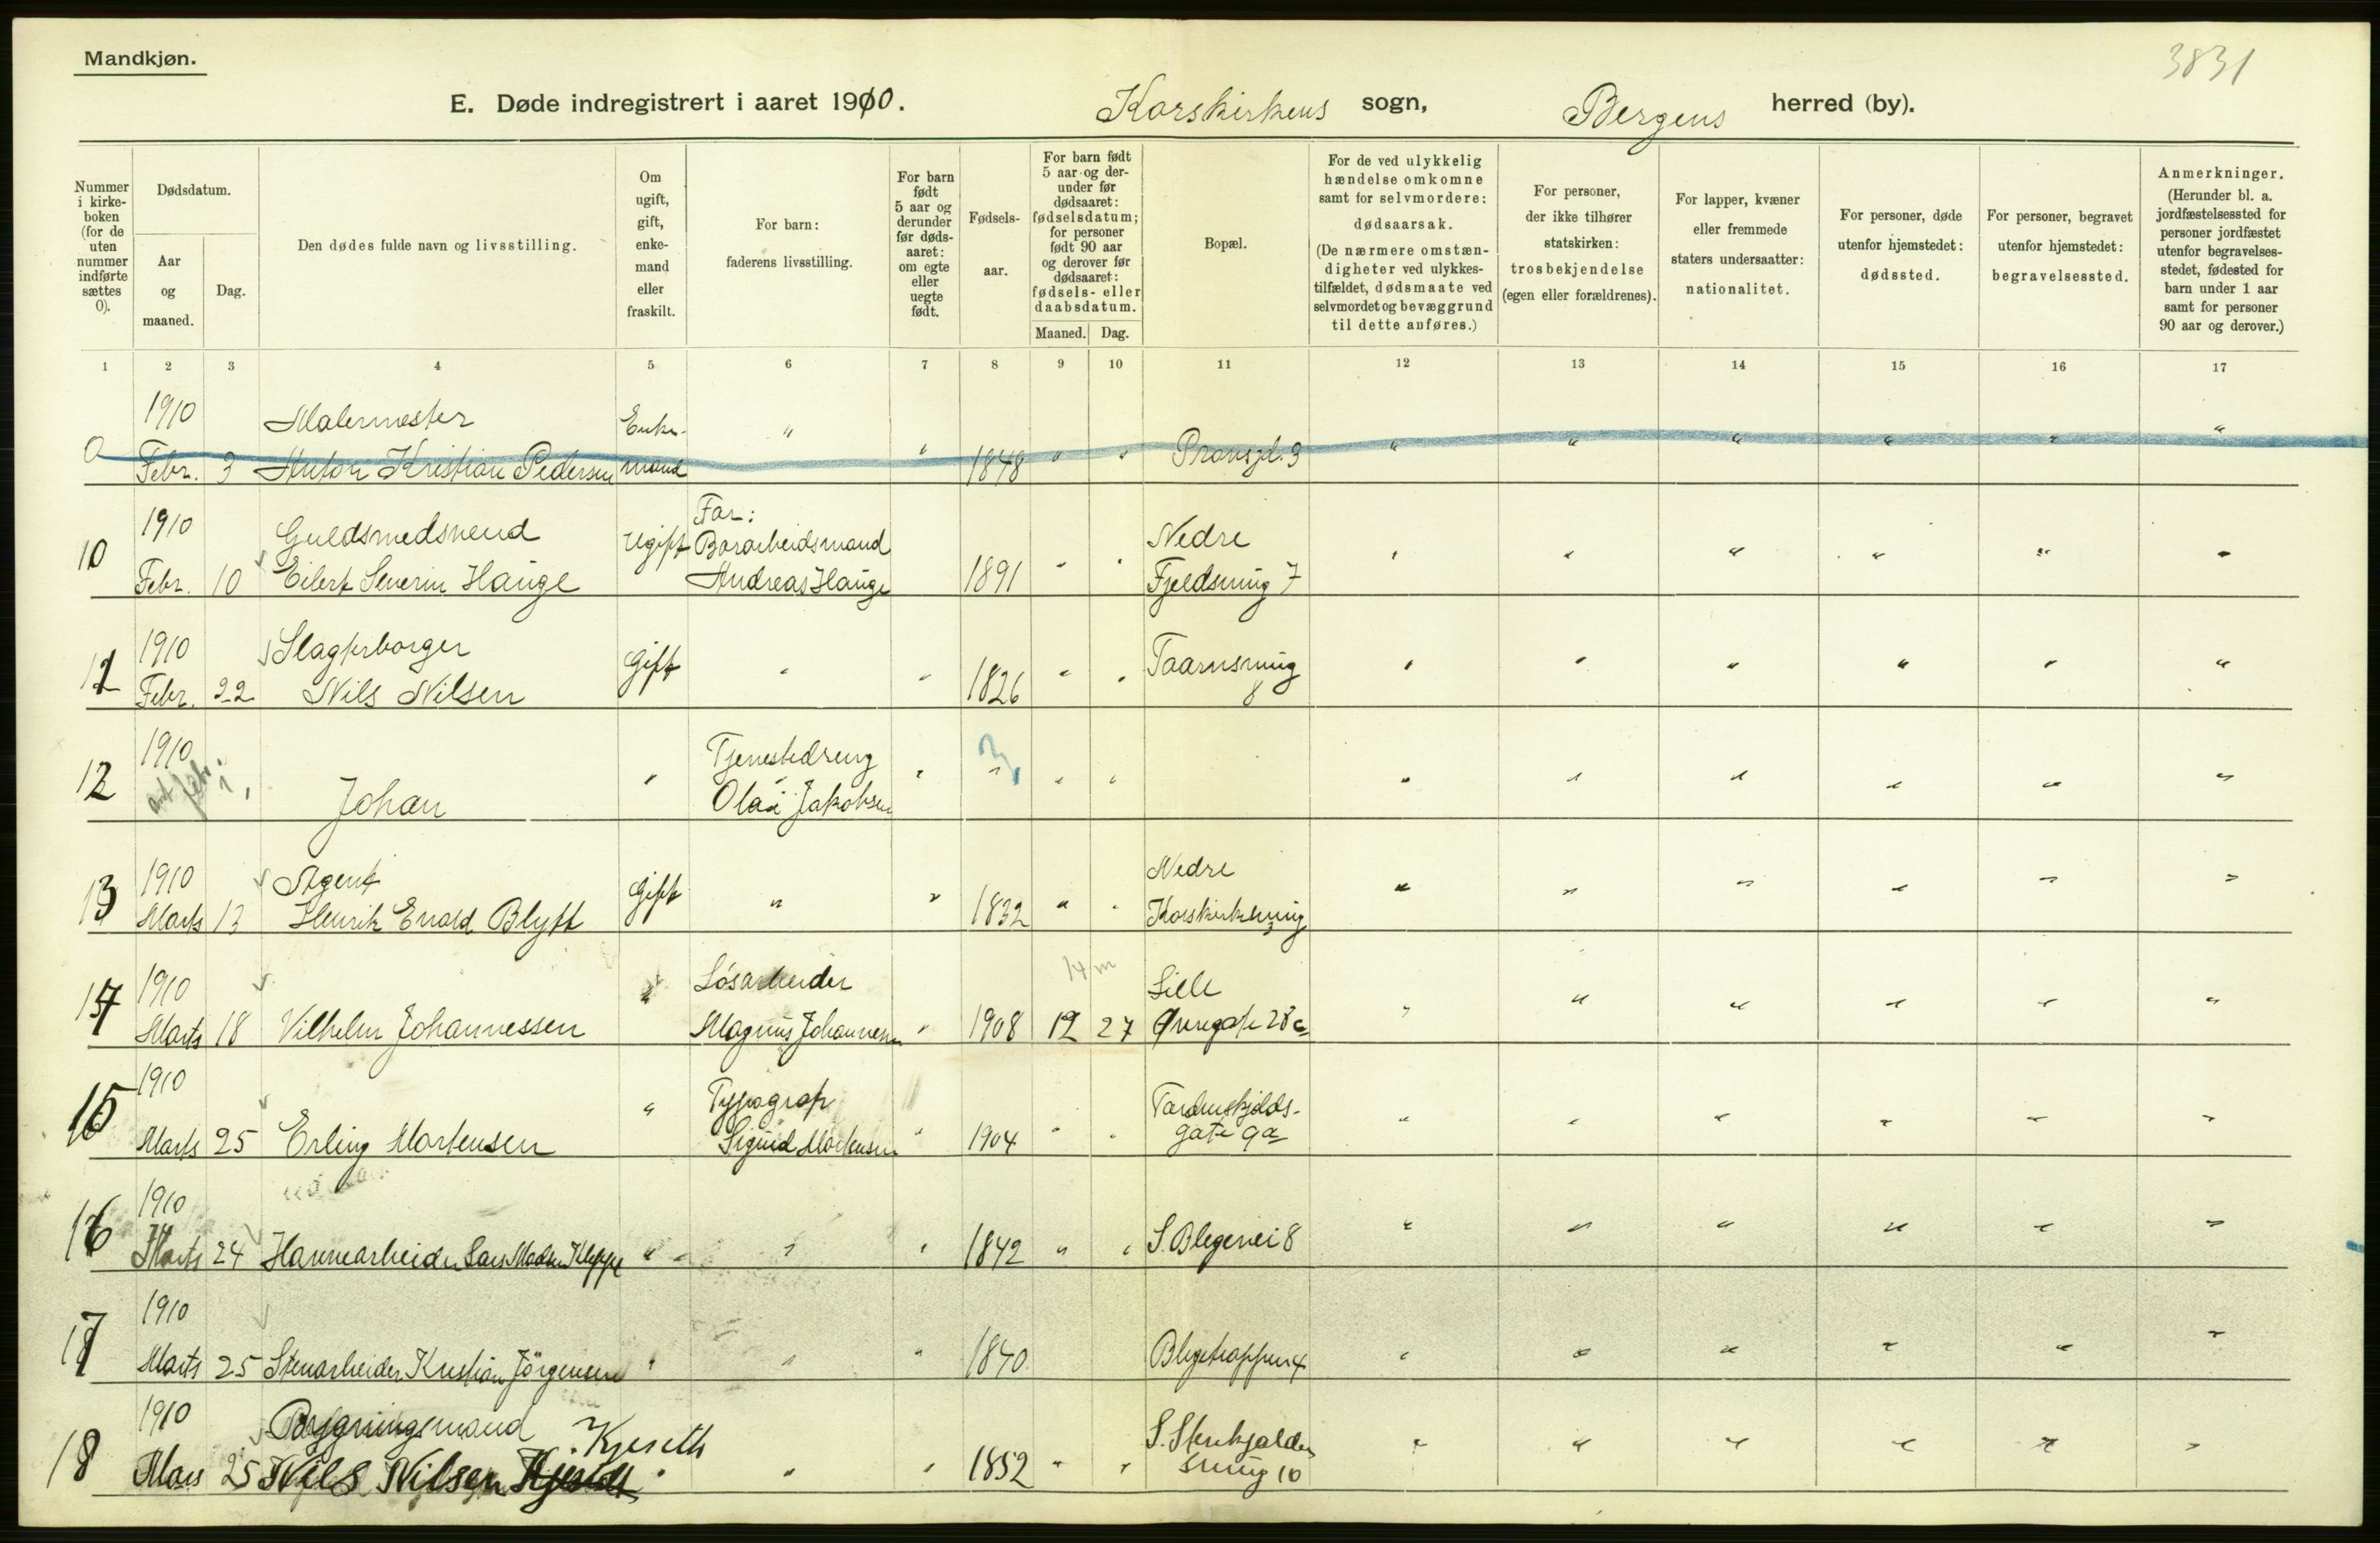 Mandkjøn.
3831
E. Døde indregistrert i aaret 1910. Korskirkens sogn, Bergens herred (by).
Nummer i kirkeboken (for de uten nummer indførte sættes 0).
Dødsdatum.
Aar og maaned.
Dag.
Den dødes fulde navn og livsstilling.
Om ugift, gift, enkemand eller fraskilt.
For barn: faderens livsstilling.
For barn født 5 aar og derunder før dødsaaret: om egte eller uegte født.
Fødselsaar.
For barn født 5 aar og derunder før dødsaaret: fødselsdatum; for personer født 90 aar og derover før dødsaaret: fødsels- eller daabsdatum.
Maaned. Dag.
Bopæl.
For de ved ulykkelig hændelse omkomne samt for selvmordere: dødsaarsak. (De nærmere omstændigheter ved ulykkestilfældet, dødsmaate ved selvmordet og bevæggrund til dette anføres.)
For personer, der ikke tilhører statskirken: trosbekjendelse (egen eller forældrenes).
For lapper, kvæner eller fremmede staters undersaatter: nationalitet.
For personer, døde utenfor hjemstedet: dødssted.
For personer, begravet utenfor hjemstedet: begravelsessted.
Anmerkninger. (Herunder bl. a. jordfæstelsessted for personer jordfæstet utenfor begravelsesstedet, fødested for barn under 1 aar samt for personer 90 aar og derover.)
1 2 3 4 5 6 7 8 9 10 11 12 13 14 15 16 17
1910 Malermester Enke- "
0 Febr. 3 Anton Kristian Pedersen mand " 1848 " " 3 " " " " " "
1910 Guldsmedsvend Ugift Far: Nedre
10 Febr. 10 Eilert Severin Hauge Andreas Hauge 1891 " " Fjeldsmug 7 " " " " " "
1910 Slagterborger Gift " Taarnsmug
11 Febr. 22 Nils Nilsen " 1826 " " 8 " " " " " "
1910 Tjenestedreng
12 Johan " Jakobsen " " " " " " " " " "
1910 Agent Gift Nedre
13 Marts 13 Henrik Blytt " " 1832 " " Korskirksmug " " " " " "
1910 Løsarbeider 14 m Lille
14 Marts 18 Vilhelm Johannessen " Magnus Johannesen " 1908 12 27 Øvregate 28 c " " " " " "
1910 Typograf Tordenskjolds-
15 Marts 25 Erling Mortensen " Sigurd Mortensen " 1904 " " gate 9a " " " " " "
1910
16 Marts 24 Havnearbeider Lars Madsen Kleppe " " " 1842 " " S. Blegevei 8 " " " " " "
1910
17 Marts 25 Stenarbeider Kristian Jörgensen " " " 1840 Blegetrappen 4 " " " " " "
1910 Bygningsmand Kjeseth
18 Mars 25 Nils Nilsen " " " 1852 " " smug 10 " " " " " "